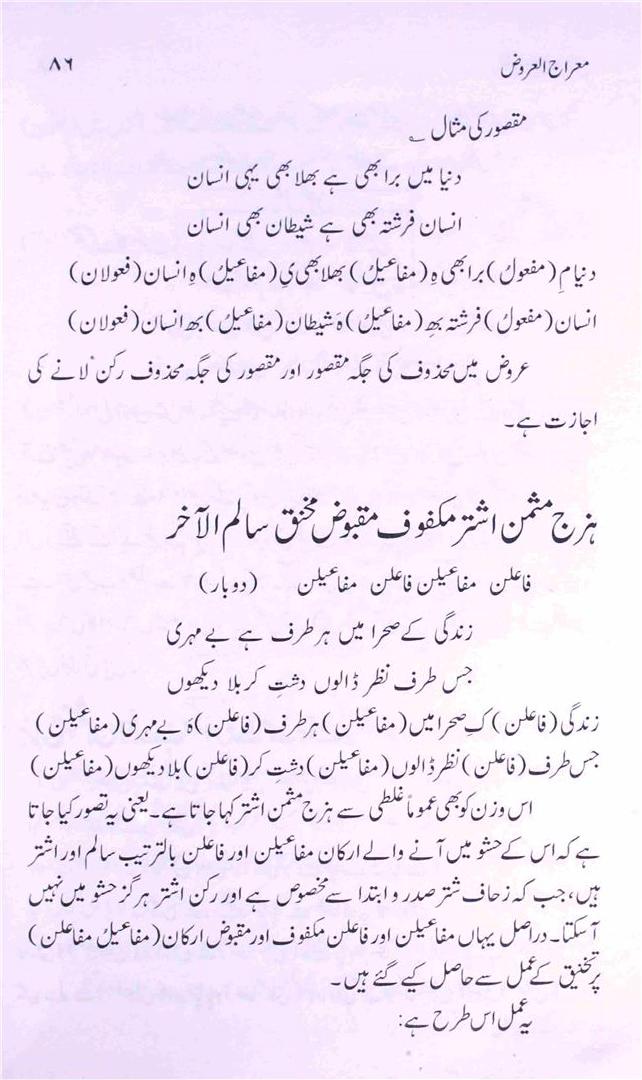 معراج العروض ۸۶
مقصور کی مثال ؎
دنیا میں برا بھی ہے بھلا بھی یہی انسان
انسان فرشتہ بھی ہے شیطان بھی انسان
دنیا مِ (مفعولُ) برا بھی ہِ (مفاعیلُ) بھلا بھی یِ (مفاعیلُ) ہِ انسان (فعولان)
انسان (مفعولُ) فرشتہ بھِ (مفاعیلُ) ہَ شیطان (مفاعیلُ) بھ انسان (فعولان)
عروض میں محذوف کی جگہ مقصور اور مقصور کی جگہ محذوف رکن لانے کی
اجازت ہے۔
ہزج مثمن اشتر مکفوف مقبوض مخنق سالم الآخر
فاعلن مفاعیلن فاعلن مفاعیلن (دوبار)
زندگی کے صحرا میں ہر طرف ہے بے مہری
جس طرف نظر ڈالوں دشتِ کربلا دیکھوں
زندگی (فاعلن) کِ صحرا میں (مفاعیلن) ہر طرف (فاعلن) ہَ بے مہری (مفاعیلن)
جس طرف (فاعلن) نظر ڈالوں (مفاعیلن) دشتِ کر (فاعلن) بلا دیکھوں (مفاعیلن)
اس وزن کو بھی عموماً غلطی سے ہزج مثمن اشتر کہا جاتا ہے۔ یعنی یہ تصور کیا جاتا
ہے کہ اس کے حشو میں آنے والے ارکان مفاعیلن اور فاعلن بالترتیب سالم اور اشتر
ہیں، جب کہ زحاف شتر صدر و ابتدا سے مخصوص ہے اور رکن اشتر ہرگز حشو میں نہیں
آ سکتا۔ دراصل یہاں مفاعیلن اور فاعلن مکفوف اور مقبوض ارکان (مفاعیلُ مفاعلن)
پر تخنیق کے عمل سے حاصل کیے گئے ہیں۔
یہ عمل اس طرح ہے: